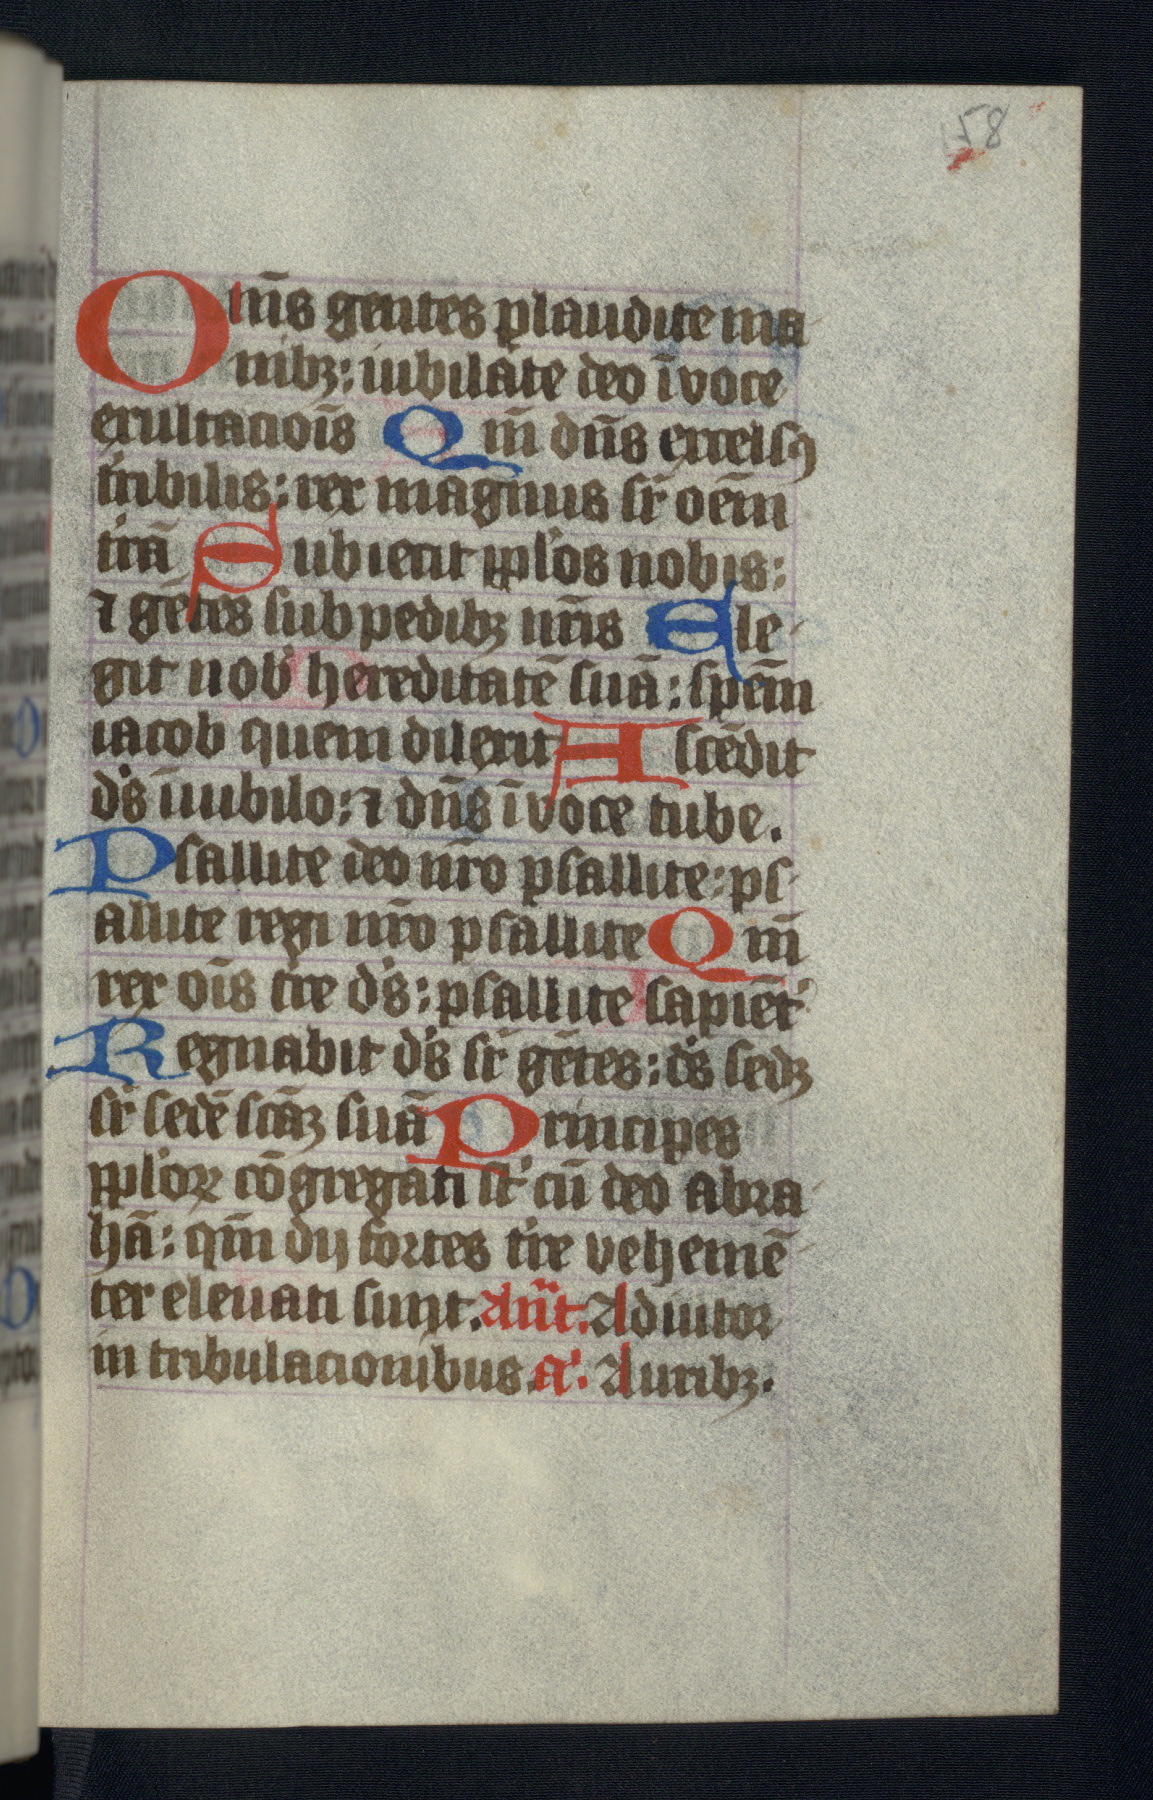 158
Om̄s gentes plaudite ma
nibꝫ: iubilate deo ī voce
exultacioīs Qm̄ dn̄s excelsꝯ
tribilis: rex magnus sr̄ oēm
trā Subiecit pplos nobis:
⁊ gētes sub pedibꝫ nr̄is Ele
git nob hereditatē suā: spēm
iacob quem dilexit Ascēdit
ds īiubilo: ⁊ dn̄s ī voce tube.
Psallite deo nr̄o psallite: ps
allite regi nr̄o psallite Qm̄
rex oīs tre ds: psallite sapiēt
Regnabit ds sr̄ gētes: ds sedꝫ
sr̄ sedē scāꝫ suā Principes
pploꝝ cōgregati st cū deo abra
hā: qm̄ dij fortes tre vehemē
ter eleuati sunt. Ant̄. Adiutor
in tribulacionibus. a. Auribꝫ.